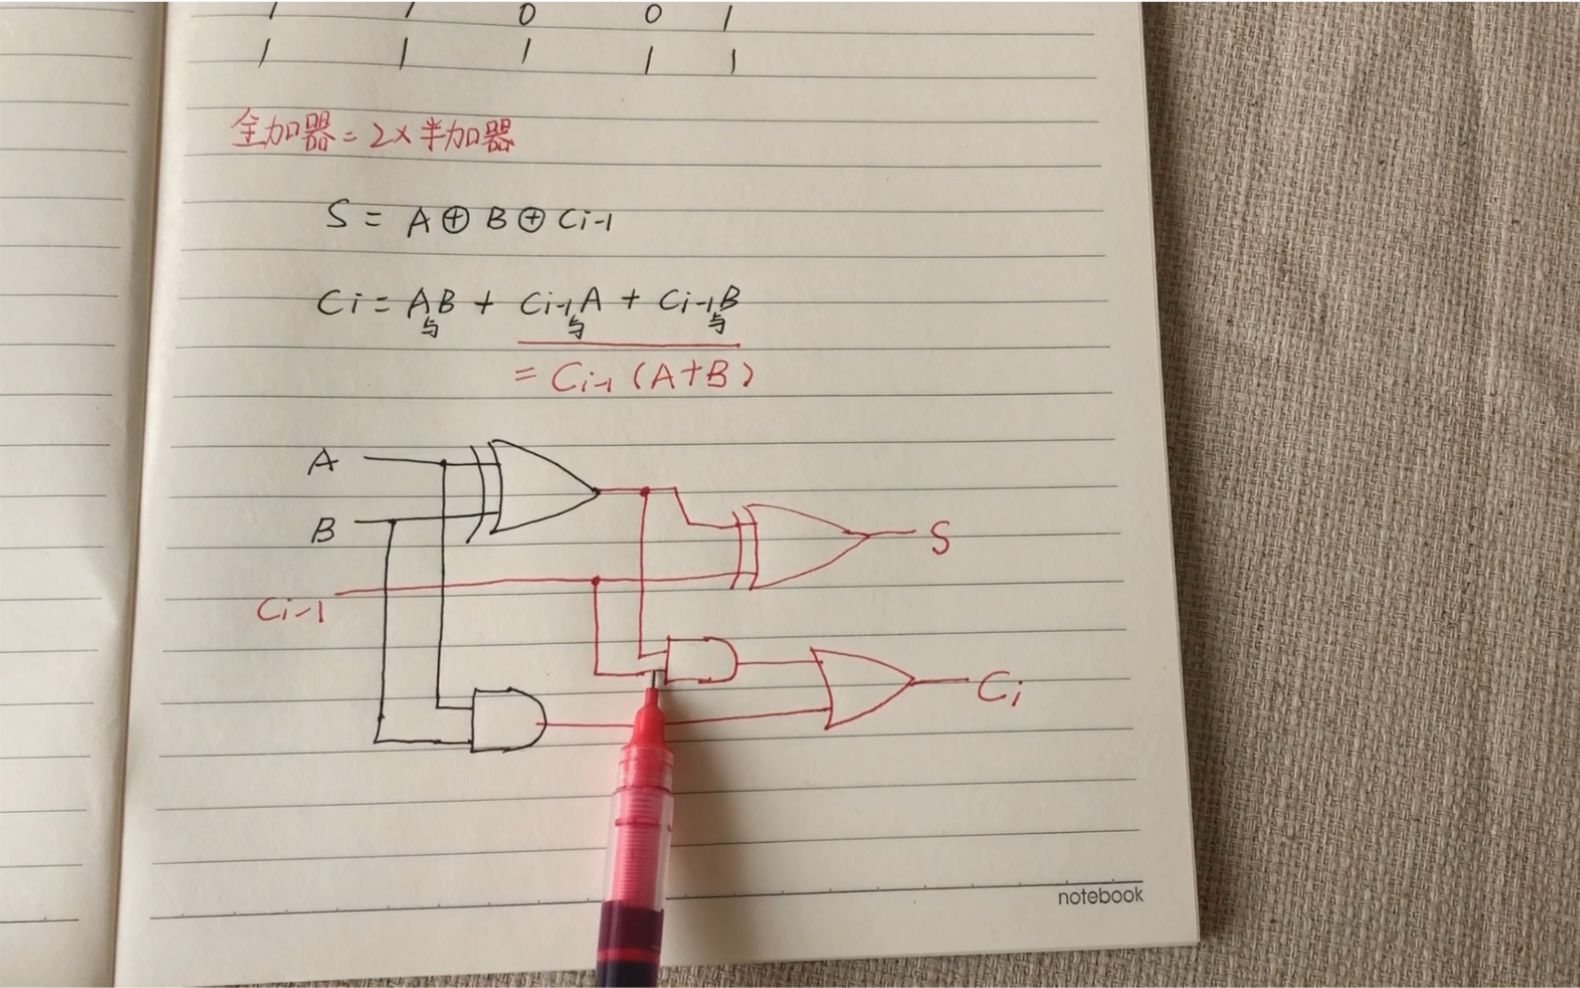 1 1 0 0 1
1 1 1 1 1
全加器=2×半加器
S = A ⊕ B ⊕ Ci-1
Ci = AB + Ci-1A + Ci-1B
与 与 与
= Ci-1 (A+B)
A
B
S
Ci-1
Ci
notebook